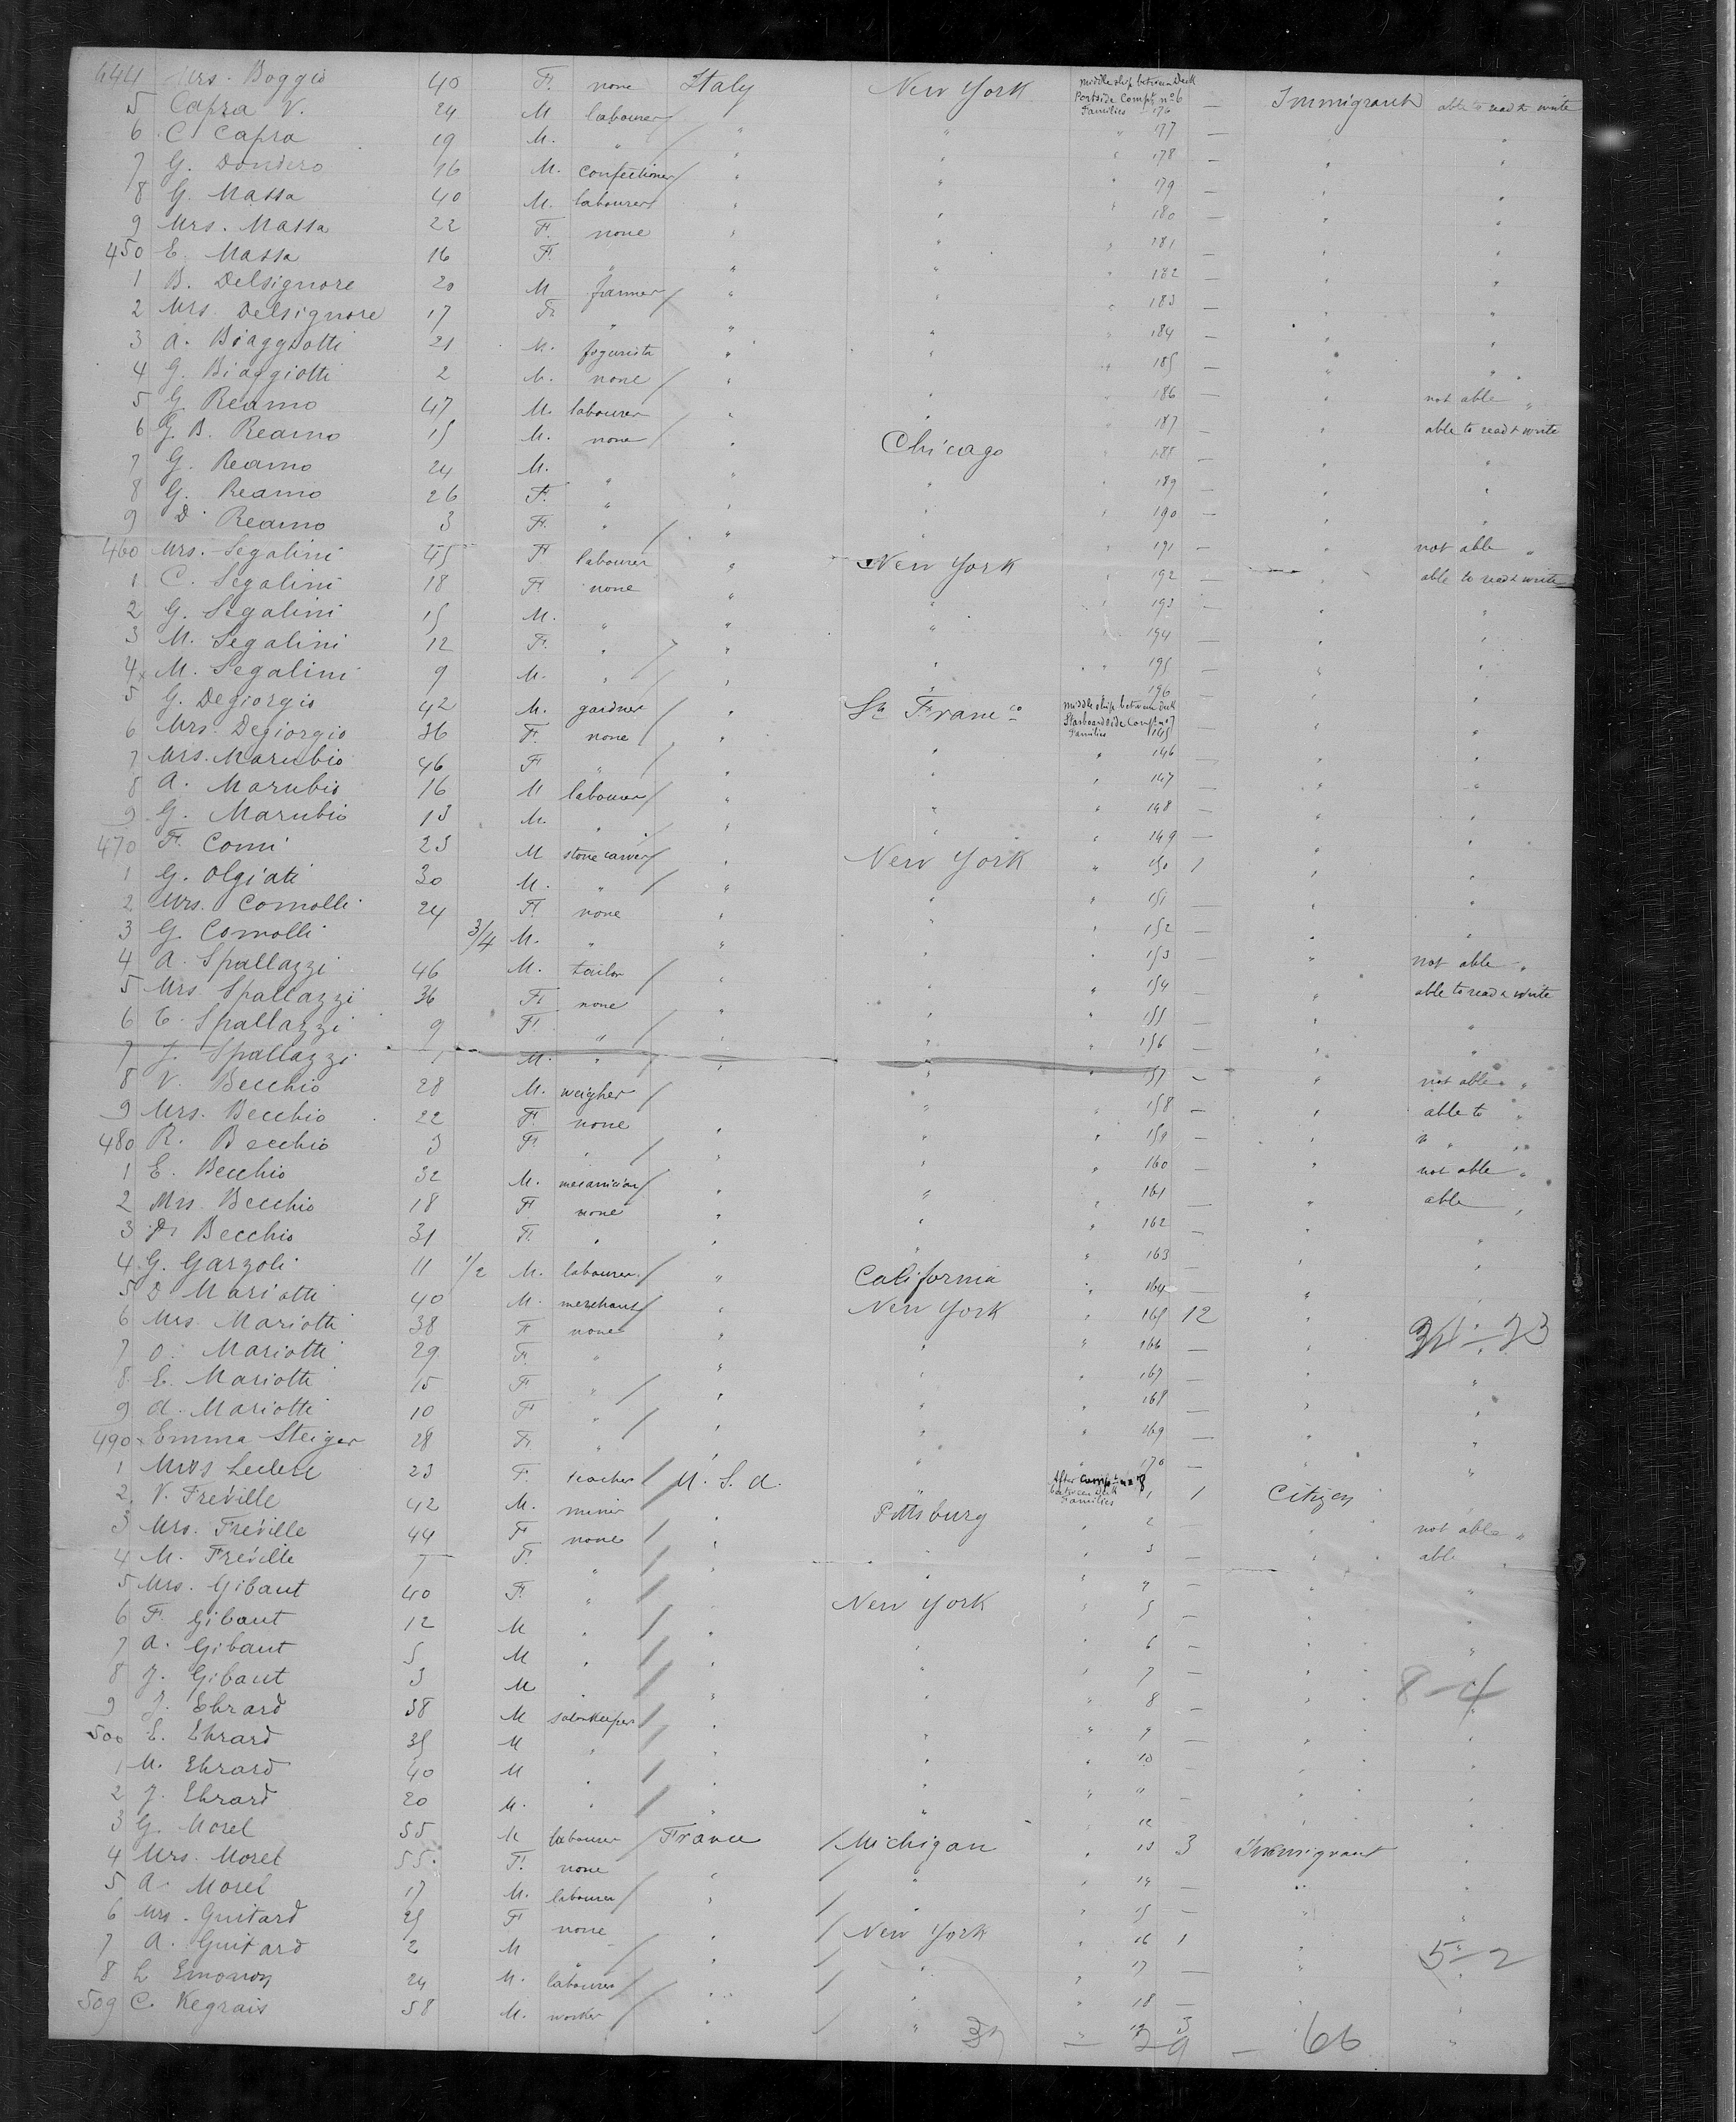 444 Mrs. Boggio 40 F. none Italy New York Middle ship between Deck Portside Compt no 6 Families 176 — Immigrant able to read & write
5 Capra V. 24 M labourer " " " 177 — " "
6 C. Capra 19 M. " " " " 178 — " "
7 G. Dondero 46 M. confectioner " " " 179 — " "
8 G. Massa 40 M. labourer " " " 180 — " "
9 Mrs. Massa 22 F. none " " " 181 — " "
450 E. Massa 16 F. " " " " 182 — " "
1 B. Delsignore 20 M farmer " " " 183 — " "
2 Mrs. Delsignore 17 F. " " " " 184 — " "
3 A. Biaggiotti 21 M. figurista " " " 185 — " "
4 G. Biaggiotti 2 M. none " " " 186 — " not able "
5 G Reamo 47 M. labourer " " " 187 — " able to read & write
6 G. B. Reamo 15 M. none " Chicago " 188 — " "
7 G. Reamo 24 M. " " " " 189 — " "
8 G. Reamo 26 F. " " " " 190 — " "
9 D. Reamo 3 F. " " " " 191 — " not able "
460 Mrs. Segalini 45 F labourer " New York " 192 — " able to read & write
1 C. Segalini 18 F. none " " " 193 — " "
2 G. Segalini 15 M. " " " " 194 — " "
3 M. Segalini 12 F. " " " " 195 — " "
4 M. Segalini 9 M. " " " " 196 — " "
5 G. Degiorgio 42 M. gardner " Sn Franco Middle ship between deck Starboardside Compt no 7 Families 145 — " "
6 Mrs. Degiorgio 36 F. none " " " 146 — " "
7 Mrs. Marubio 46 F " " " " 147 — " "
8 A. Marubio 16 M labourer " " " 148 — " "
9 G. Marubio 13 M. " " " " 149 — " "
470 F. Comi 23 M stone carver " New York " 150 1 " "
1 G. Olgiati 30 M. " " " " 151 — " "
2 Mrs. Comolli 24 F. none " " " 152 — " "
3 G. Comolli 3/4 M. " " " " 153 — " not able "
4 A. Spallazzi 46 M. tailor " " " 154 — " able to read & write
5 Mrs. Spallazzi 36 F. none " " " 155 — " "
6 Spallazzi 9 F. " " " " 156 — " "
7 J. Spallazzi M. " " " " 157 — " not able "
8 V. Becchio 28 M. weigher " " 158 — " able to "
9 Mrs. Becchio 22 F. none " " " 159 — " " " "
480 R. Becchio 3 F. " " " " 160 — " not able "
1 E. Becchio 32 M. mecanician " " " 161 — " able "
2 Mrs. Becchio 18 F none " " " 162 — " "
3 Becchio 31 F. " " " " 163 — " "
4 G. Garzoli 11 1/2 M. labourer " California " 164 — " "
5 D. Mariotti 40 M. merchant " New York " 165 12 "
6 Mrs. Mariotti 38 F none " " " 166 — " 34 - 23
7 O. Mariotti 29 F. " " " " 167 — " "
8 E. Mariotti 15 F " " " " 168 — " "
9 A. Mariotti 10 F " " " " 169 — " "
490 Emma Steiger 28 F. " " " " 170 — " "
1 Leclerc 23 F. teacher U. S. A. " After Compt no 8 between deck Families 1 1 Citizen "
2 V. Freville 42 M. miner " Pittsburg " 2 — " not able "
3 Mrs. Freville 44 F none " " " 3 — " able "
4 M. Freville 7 F. " " " " 4 — " "
5 Mrs. Gibaut 40 F. " New York " 5 — " "
6 F. Gibaut 12 M " " " " 6 — " "
7 A. Gibaut 5 M " " " " 7 — " "
8 J. Gibaut 3 M " " " " 8 — " 8 - 4
9 J. Ebrard 38 M salonkeeper " " " 9 — " "
500 E. Ebrard 35 M " " " " 10 — " "
1 M. Ebrard 40 M " " " " 11 — " "
2 J. Ebrard 20 M. " " " " 12 " "
3 G. Morel 55 M labourer France Michigan " 13 3 Immigrant "
4 Mrs. Morel 55 F. none " " " 14 — " "
5 A. Morel 17 M. labourer " " " 15 — " "
6 Mrs. Guitard 25 F none " New York " 16 1 "
7 A. Guitard 2 M " " " " 17 — " 5 - 2
8 L Emonon 24 M. labourer " " " 18 — " "
509 C. Kegrais 58 M. worker " " " 19 3 "
37 — 29 — 66